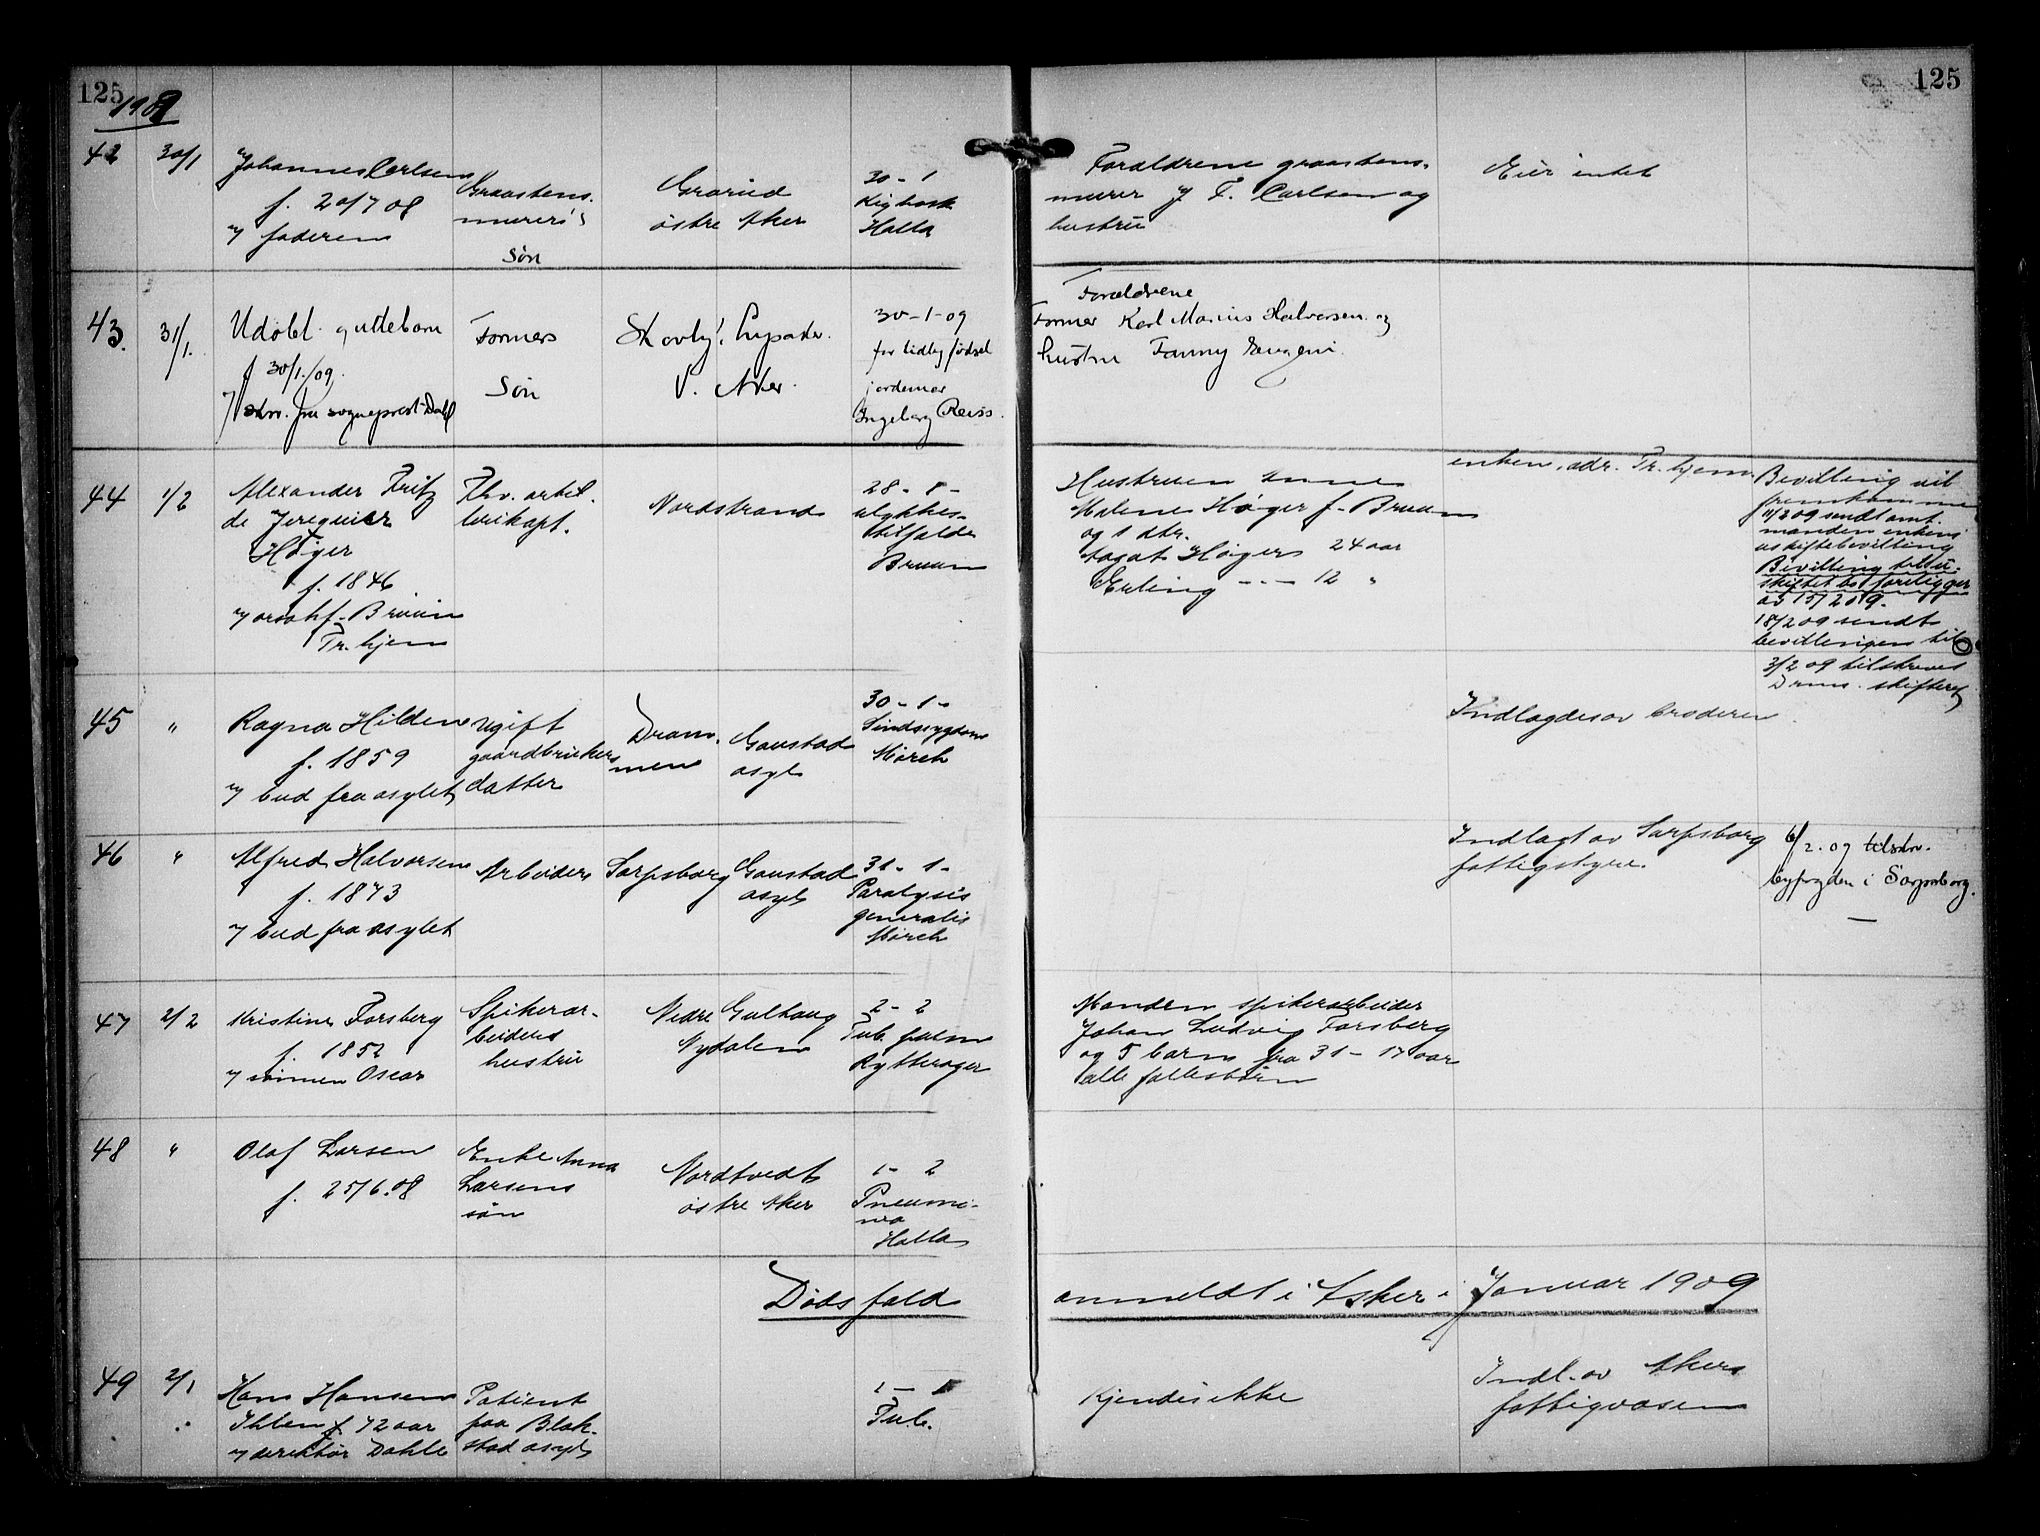 125
1909
125
42
30/1
Johannes Carlsen
f. 20/7 08
v faderen
Graastens.
murers
søn
Grorud
østre Aker
30 - 1
Kighoste
Halla
Forældrene graastens-
murer J F. Carlsen og
hustru
Eier intet
43.
31/1.
Udøbt guttebarn
f 30/1/09.
v/ skr. fra sogneprest Dahl
Formers
Søn
Skovly,
V. Aker.
30-1-09
for tidlig fødsel
jordemor
Ingeborg Reiss.
Forældrene
Former Karl Marius Halvorsen og
hustru Fanny Eugeni.
44
1/2
Alexander Fritz
de Jereguier
Høyer
f. 1846
v/ orsahf. Bruun
Tr. hjem
Fhv. artil.
lerikapt.
Nordstrand
28 - 1 -
ulykkes-
tilfælde
Bruun
Hustruen Anne
Malene Høyer f. Bruun
og 1 dtr.
Aagot Høyer 24 aar
Erling -- 12 "
enken, adr. Tr. hjem.
Bevilling vil
fremkomme
11/2 09 sendt amt.
manden enkens
uskiftebevilling
Bevilling til u-
skiftet bo foreligger
av 15/2 09.
18/2 09 sendt
bevillingen til
45
"
Ragna Hilden
f. 1859
v/ bud fra asylet
ugift
gaardbrukers
datter
Dram.
men
Gaustad
asyl
30 - 1 -
Sindssygdom
Mørch
Indlagdes av broderen.
3/2 09 tilskrevet
Dram. skifteret
46
"
Alfred Halvorsen
f. 1873
v/ bud fra asylet
Arbeider
Sarpsborg
Gaustad
asyl
31 - 1 -
Paralysis
generalis
Mørch
Indlagt av Sarpsborg
fattigstyre.
6/2. 09 tilskr.
byfogden i Sarpsborg.
47
2/2
Kristine Forsberg
f. 1852
v/ sønnen Oscar
Spikerar-
beiders
hustru
Nedre Gulhaug
Nydalen
2 - 2
Tub. pulm
Rytterager
Manden spikerarbeider
Johan Ludvig Forsberg
og 5 barn fra 31 - 17 aar
alle fællesbørn
48
"
Olaf Larsen
f. 25/6.08
Enke Anna
Larsens
søn
Nordtvedt
østre Aker
1 - 2
Pneumo-
nia
Halla
Dødsfald
anmeldt i Asker i Januar 1909
49
2/1
Hans Hansen
Ihlen f. 72 aar
v/ direktør Dahle
Patient
paa Blak-
stad asyl
1 - 1
Tub.
Kjendes ikke
Indl. av Akers
fattigvæsen